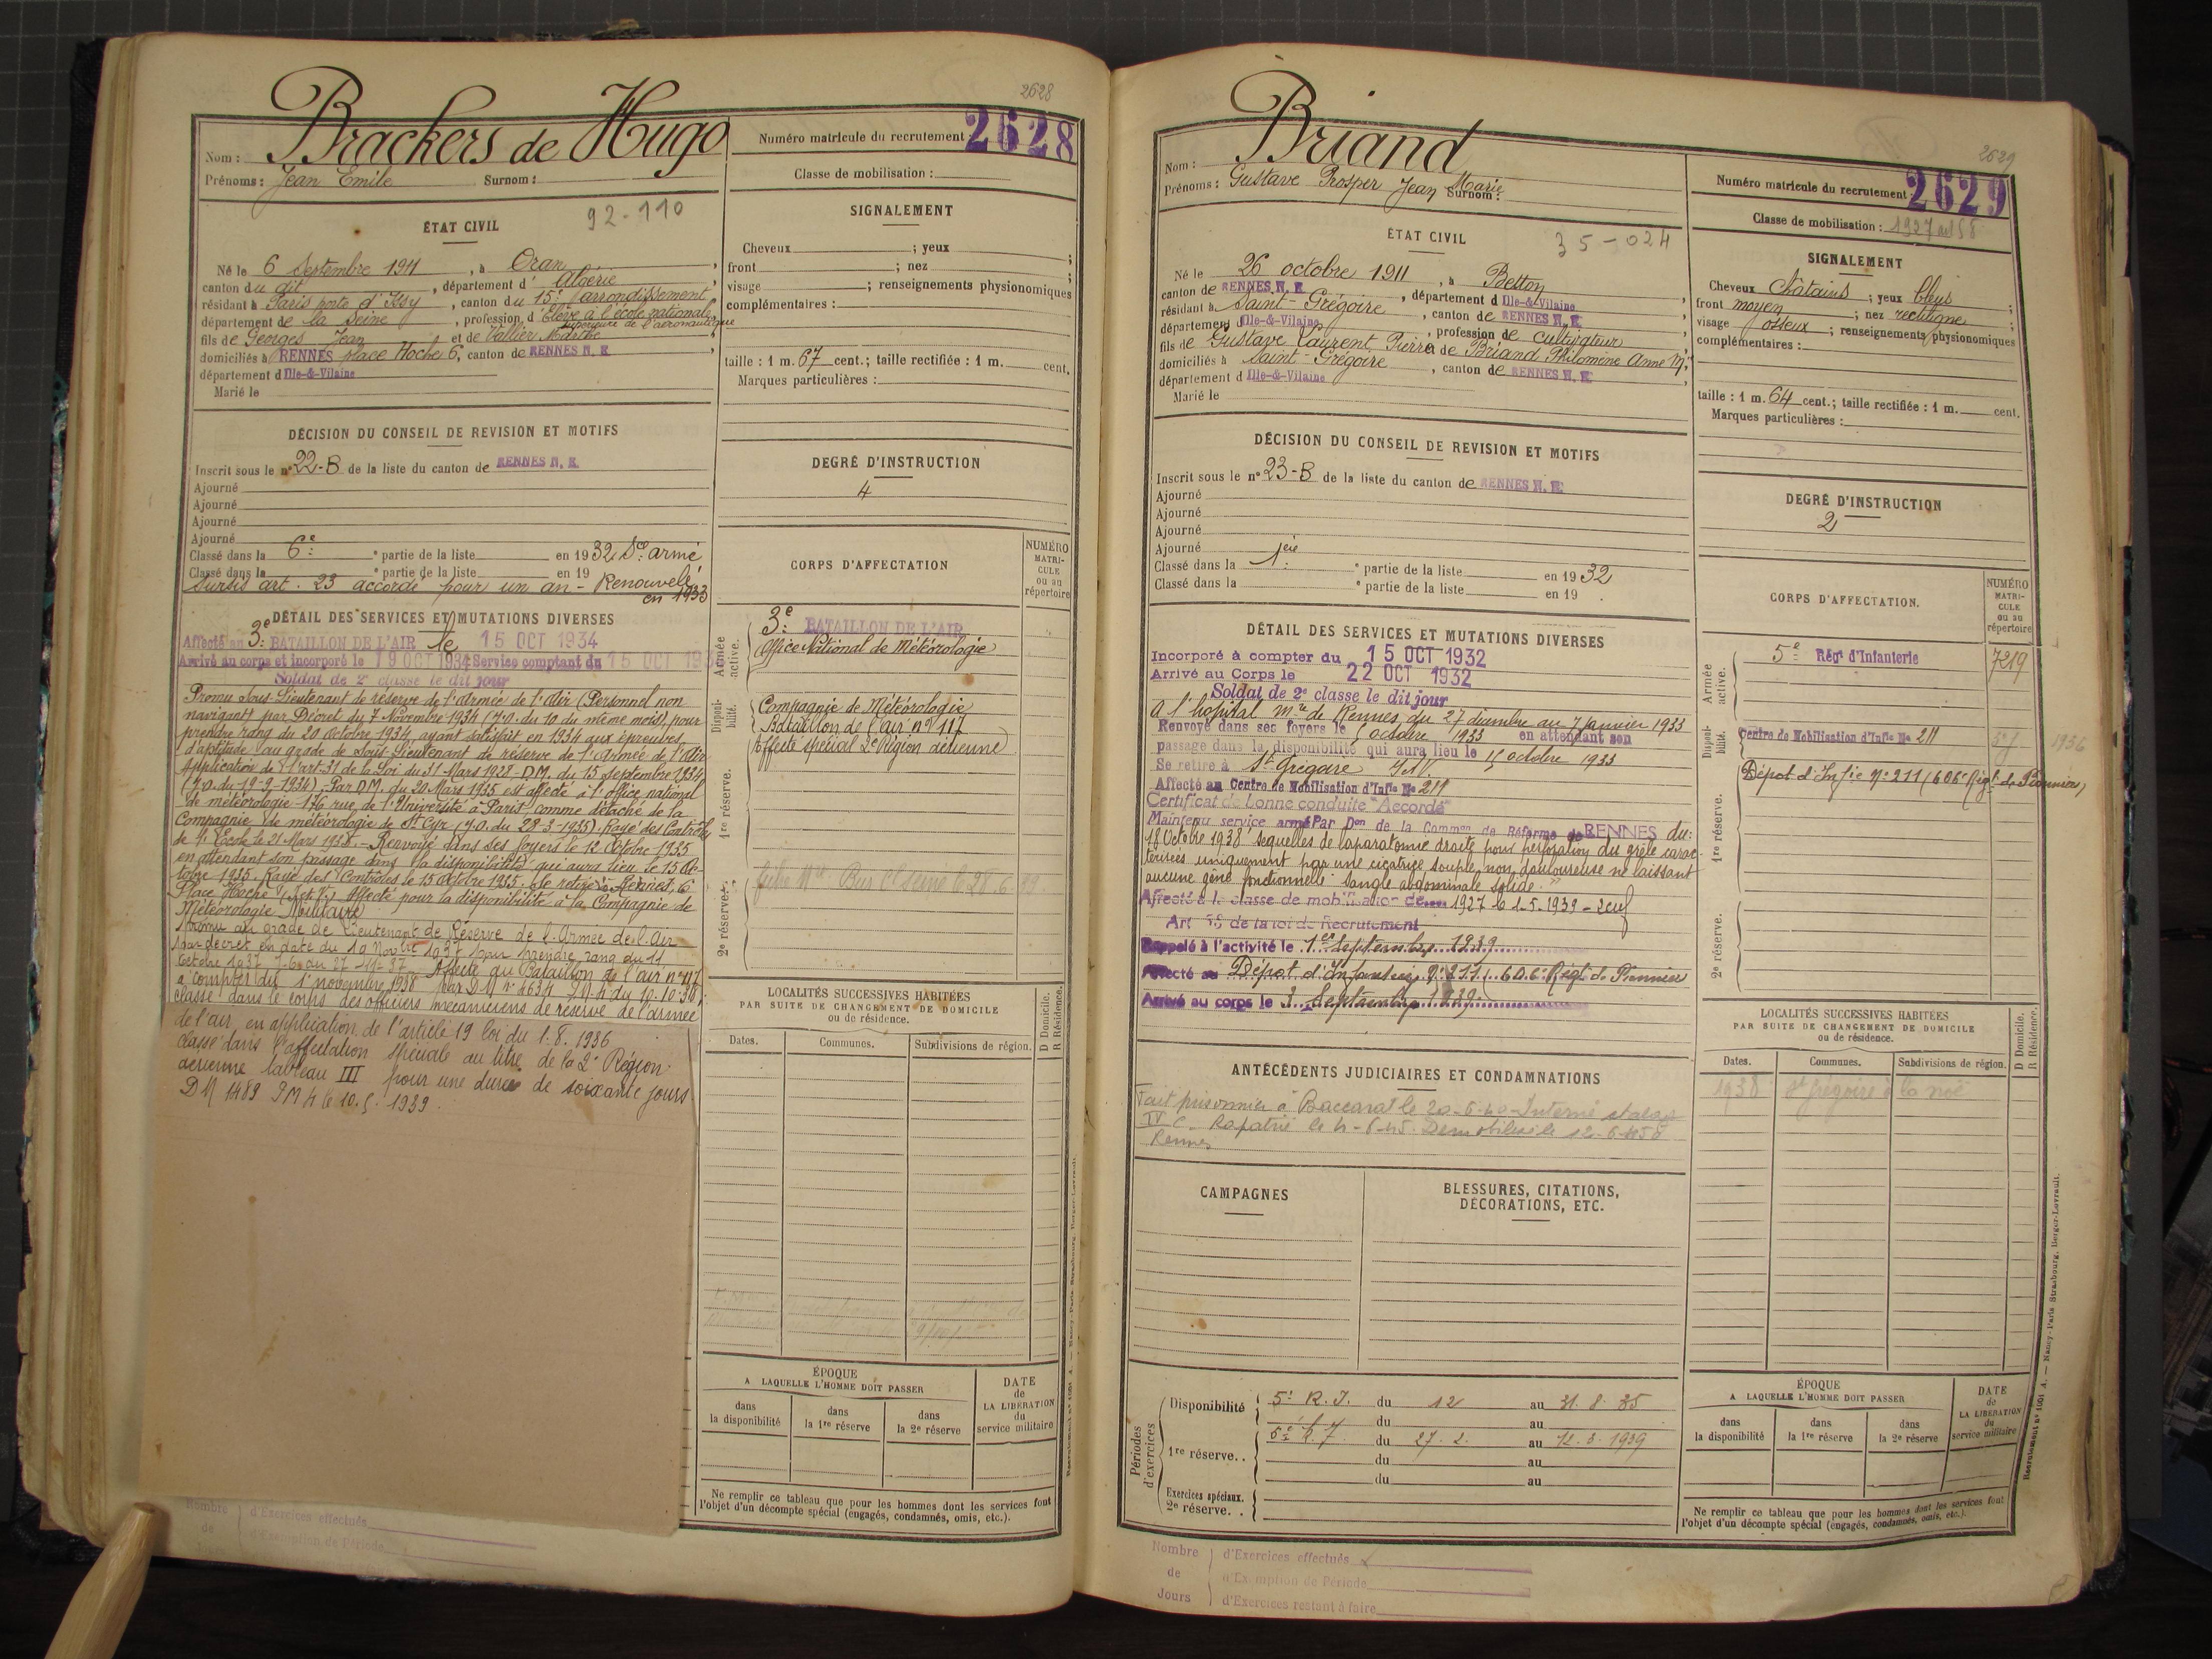 2628
Nom : Brackers de Hugo
Prénoms : Jean Emile Surnom :
Numéro matricule du recrutement : 2628
Classe de mobilisation :
ÉTAT CIVIL
92-110
Né le 6 Septembre 1911, à Oran,
canton du dit, département d'Algérie
résidant à Paris porte d'Issy, canton du 15e arrondissement
département de la Seine, profession d'Elève à l'école nationale
supérieure de l'aéronautique
fils de Georges Jean et de Vallier Marthe
domiciliés à RENNES place Hoche 6, canton de RENNES N. E.
département d'Ille-&-Vilaine
Marié le
SIGNALEMENT
Cheveux ; yeux ;
front ; nez ;
visage ; renseignements physionomiques
complémentaires :
taille : 1 m. 67 cent.; taille rectifiée : 1 m. cent.
Marques particulières :
DÉCISION DU CONSEIL DE REVISION ET MOTIFS
Inscrit sous le n° 22-B de la liste du canton de RENNES N. E.
Ajourné
Ajourné
Ajourné
Ajourné
Classé dans la 6e partie de la liste en 1932 Sce armé
Classé dans la e partie de la liste en 19
Sursis art. 23 accordé pour un an - Renouvelé
en 1933
DEGRÉ D'INSTRUCTION
4
DÉTAIL DES SERVICES ET MUTATIONS DIVERSES
Affecté au 3e BATAILLON DE L'AIR le 15 OCT 1934
Arrivé au corps et incorporé le 19 OCT 1934 Service comptant du 15 OCT 193
Soldat de 2e classe le dit jour
Promu Sous-Lieutenant de réserve de l'Armée de l'Air (Personnel non
navigant) par Décret du 7 Novembre 1934 (J.O. du 10 du même mois), pour
prendre rang du 20 Octobre 1934, ayant satisfait en 1934 aux épreuves
d'aptitude au grade de Sous-Lieutenant de réserve de l'Armée de l'Air
Application de l'art. 31 de la Loi du 31 Mars 1928 - D.M. du 15 septembre 1934
(J.O. du 19-9-1934) - Par D.M. du 20 Mars 1935 est affecté à l'office national
de météorologie 176 rue de l'Université à Paris comme détaché de la
Compagnie de météorologie de St Cyr (J.O. du 28-3-1935). Rayé des Contrôles
de l'Ecole le 21 Mars 1935. - Renvoyé dans ses foyers le 12 Octobre 1935
en attendant son passage dans la disponibilité qui aura lieu le 15 Oc-
tobre 1935. Rayé des Contrôles le 15 Octobre 1935. Se retire à Rennes, 6
Place Hoche (I. et V.) Affecté pour la disponibilité à la Compagnie de
Météorologie Militaire
Promu au grade de Lieutenant de Réserve de l'Armée de l'Air
par décret en date du 19 Novbre 1937 pour prendre rang du 11
Octobre 1937 J.O. du 27-11-37 - Affecté au Bataillon de l'air n° 117
à compter du 1 novembre 1938 par D.M. n° 4634 du 10.10.38
classé dans le corps des officiers mécaniciens de réserve de l'armée
de l'air, en application de l'article 19 loi du 1.8.1936
classé dans l'affectation spéciale au titre de la 2e Région
aérienne tableau III pour une durée de soixante jours
DM 1489 PM4 le 10.5.1939.
CORPS D'AFFECTATION
NUMÉRO
MATRI-
CULE
ou au
répertoire
Armée active.
3e BATAILLON DE L'AIR
Office National de Météorologie
Disponi-
bilité.
Compagnie de Météorologie
Bataillon de l'air n° 117
Affecté spécial 2e Région aérienne
1re réserve.
2e réserve.
LOCALITÉS SUCCESSIVES HABITÉES
PAR SUITE DE CHANGEMENT DE DOMICILE
ou de résidence.
D Domicile.
R Résidence.
Dates. Communes. Subdivisions de région.
ÉPOQUE
A LAQUELLE L'HOMME DOIT PASSER
dans la disponibilité
dans la 1re réserve
dans la 2e réserve
DATE
de
LA LIBÉRATION
du
service militaire
Ne remplir ce tableau que pour les hommes dont les services font
l'objet d'un décompte spécial (engagés, condamnés, omis, etc.).
Nombre
de
Jours
d'Exercices effectués
d'Exemption de Période
2629
Nom : Briand
Prénoms : Gustave Prosper Jean Marie
Surnom :
Numéro matricule du recrutement : 2629
Classe de mobilisation : 1927
ÉTAT CIVIL
35-024
Né le 26 octobre 1911, à Betton,
canton de RENNES N. E., département d'Ille-&-Vilaine
résidant à Saint-Grégoire, canton de RENNES N. E.
département d'Ille-&-Vilaine, profession de cultivateur
fils de Gustave Laurent Pierre et de Briand Philomine Anne M.
domiciliés à Saint-Grégoire, canton de RENNES N. E.
département d'Ille-&-Vilaine
Marié le
SIGNALEMENT
Cheveux châtains ; yeux bleus ;
front moyen ; nez rectiligne ;
visage osseux ; renseignements physionomiques
complémentaires :
taille : 1 m. 64 cent.; taille rectifiée : 1 m. cent.
Marques particulières :
DÉCISION DU CONSEIL DE REVISION ET MOTIFS
Inscrit sous le n° 23-B de la liste du canton de RENNES N. E.
Ajourné
Ajourné
Ajourné
Ajourné
Classé dans la 1ère partie de la liste en 1932
Classé dans la e partie de la liste en 19
DEGRÉ D'INSTRUCTION
2
DÉTAIL DES SERVICES ET MUTATIONS DIVERSES
Incorporé à compter du 15 OCT 1932
Arrivé au Corps le 22 OCT 1932
Soldat de 2e classe le dit jour
A l'hopital Mre de Rennes du 27 décembre au 7 Janvier 1933
Renvoyé dans ses foyers le octobre 1933 en attendant son
passage dans la disponibilité qui aura lieu le 15 octobre 1933
Se retire à St Grégoire I & V.
Affecté au Centre de Mobilisation d'Infie No 211
Certificat de bonne conduite "Accordé"
Maintenu service armé Par Don de la Common de Réforme de RENNES du:
18 Octobre 1938 "Sequelles de laparatomie droite pour perforation du grêle carac-
térisées uniquement par une cicatrice souple, non douloureuse ne laissant
aucune gêne fonctionnelle - Sangle abdominale solide."
Affecté à la classe de mobilisation de 1927 le 1-5-1939 - 2 enf
Art 58 de la loi de Recrutement
Rappelé à l'activité le 1er Septembre 1939
Affecté au Dépot d'Infanterie N° 211 (606e Régt de Pionniers
Arrivé au corps le 3 Septembre 1939.
ANTÉCÉDENTS JUDICIAIRES ET CONDAMNATIONS
Fait prisonnier à Baccarat le 20-6-40 - Interné stalag
IV C - Rapatrié le 4-6-45. Démobilisé le
Rennes
CAMPAGNES
BLESSURES, CITATIONS,
DÉCORATIONS, ETC.
Périodes d'exercices
Disponibilité 5e R.I. du 12 au 31.8.35
du au
1re réserve.. 5e R.I. du 27.2. au 12.3.1939
du au
du au
Exercices spéciaux.
2e réserve. .
CORPS D'AFFECTATION.
NUMÉRO
MATRI-
CULE
ou au
répertoire
Armée active.
5e Régt d'Infanterie 7219
Disponi-
bilité.
Centre de Mobilisation d'Infie No 211 1936
Dépot d'Infie N° 211 (606e Régt de Pionniers)
1re réserve.
2e réserve.
LOCALITÉS SUCCESSIVES HABITÉES
PAR SUITE DE CHANGEMENT DE DOMICILE
ou de résidence.
D Domicile.
R Résidence.
Dates. Communes. Subdivisions de région.
1938 St Grégoire à la noë
ÉPOQUE
A LAQUELLE L'HOMME DOIT PASSER
dans la disponibilité
dans la 1re réserve
dans la 2e réserve
DATE
de
LA LIBÉRATION
du
service militaire
Ne remplir ce tableau que pour les hommes dont les services font
l'objet d'un décompte spécial (engagés, condamnés, omis, etc.).
Recrutement N° 1001 A. — Nancy-Paris-Strasbourg, Berger-Levrault.
Nombre
de
Jours
d'Exercices effectués
d'Exemption de Période
d'Exercices restant à faire